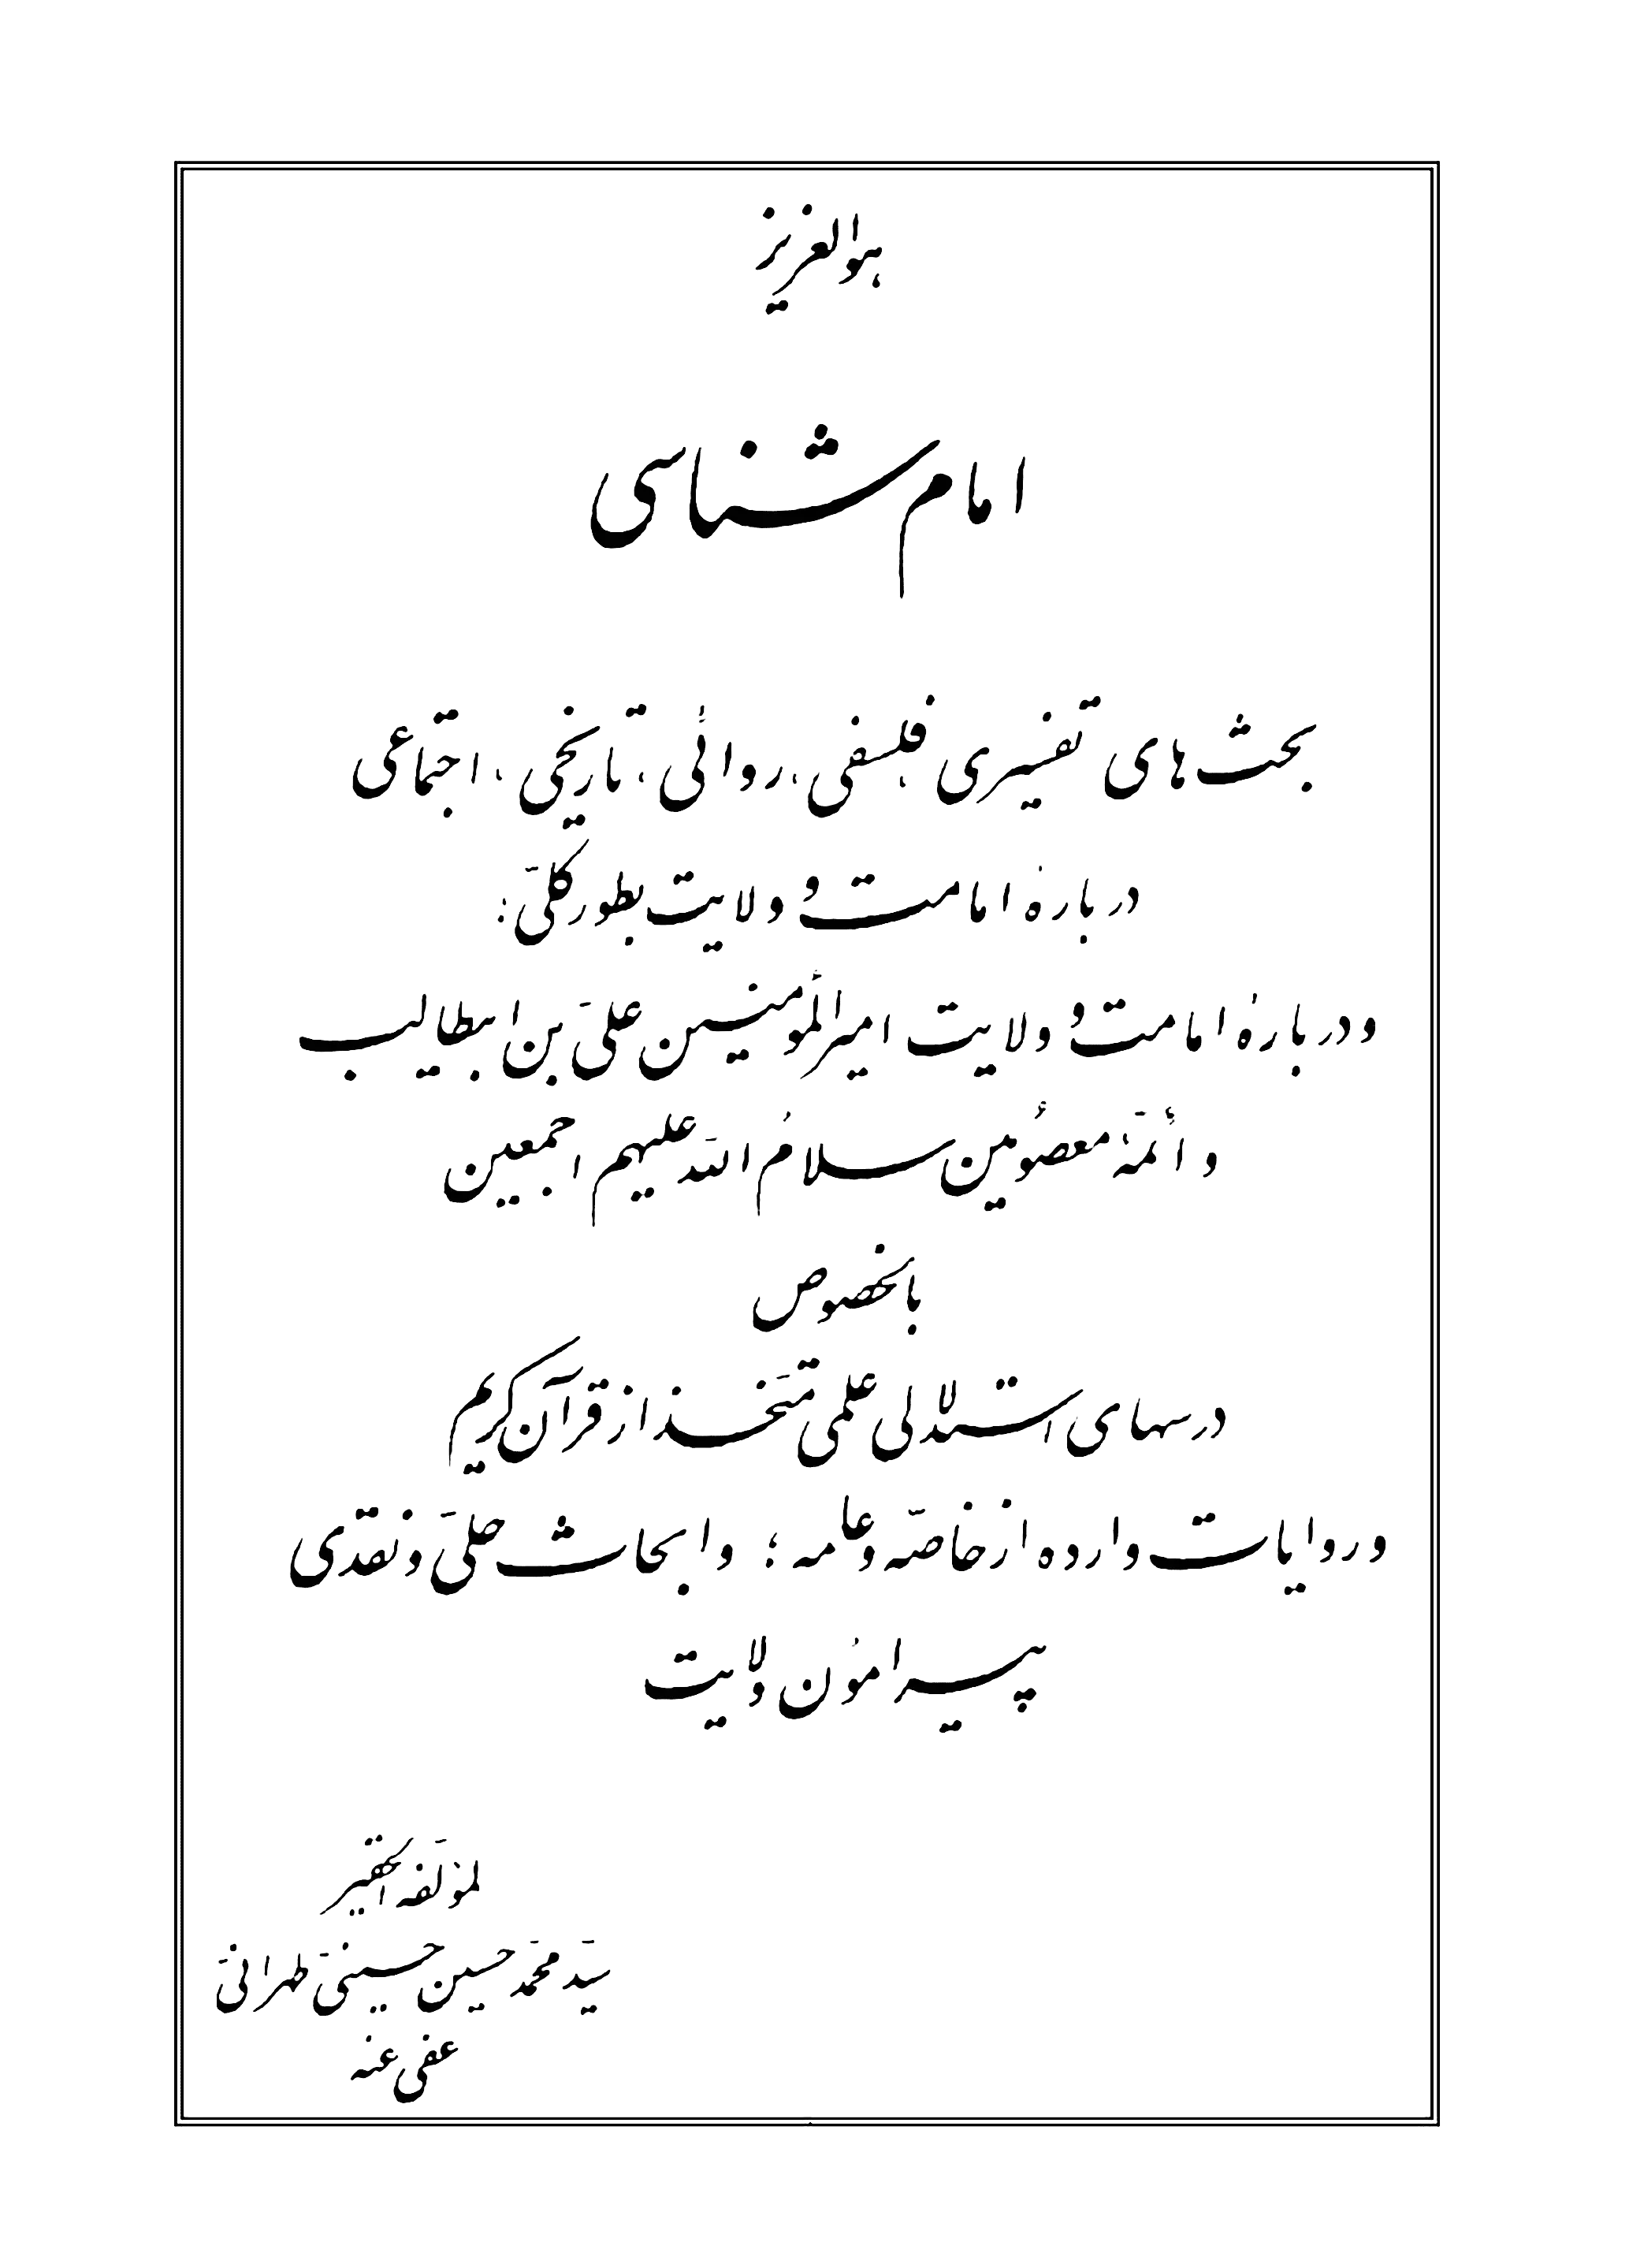 هو العزیز
امام شناسی
بحث های تفسیری، فلسفی، روائی، تاریخی، اجتماعی
دربارۀ امامت و ولایت بطور کلّی؛
و دربارۀ امامت و ولایت امیرالمؤمنین علیّ بن ابیطالب
و ائمّۀ معصومین سلامُ الله علیهم اجمعین
بالخصوص
درسهای استدلالی علمی متّخذ از قرآن کریم
و روایات وارده از خاصّه و عامه؛ و ابحاث حلّی و نقدی
پیرامون ولایت
لمؤلّفه الحقیر
سیّد محمّد حسین حسینیّ طهرانیّ
عفی عنه